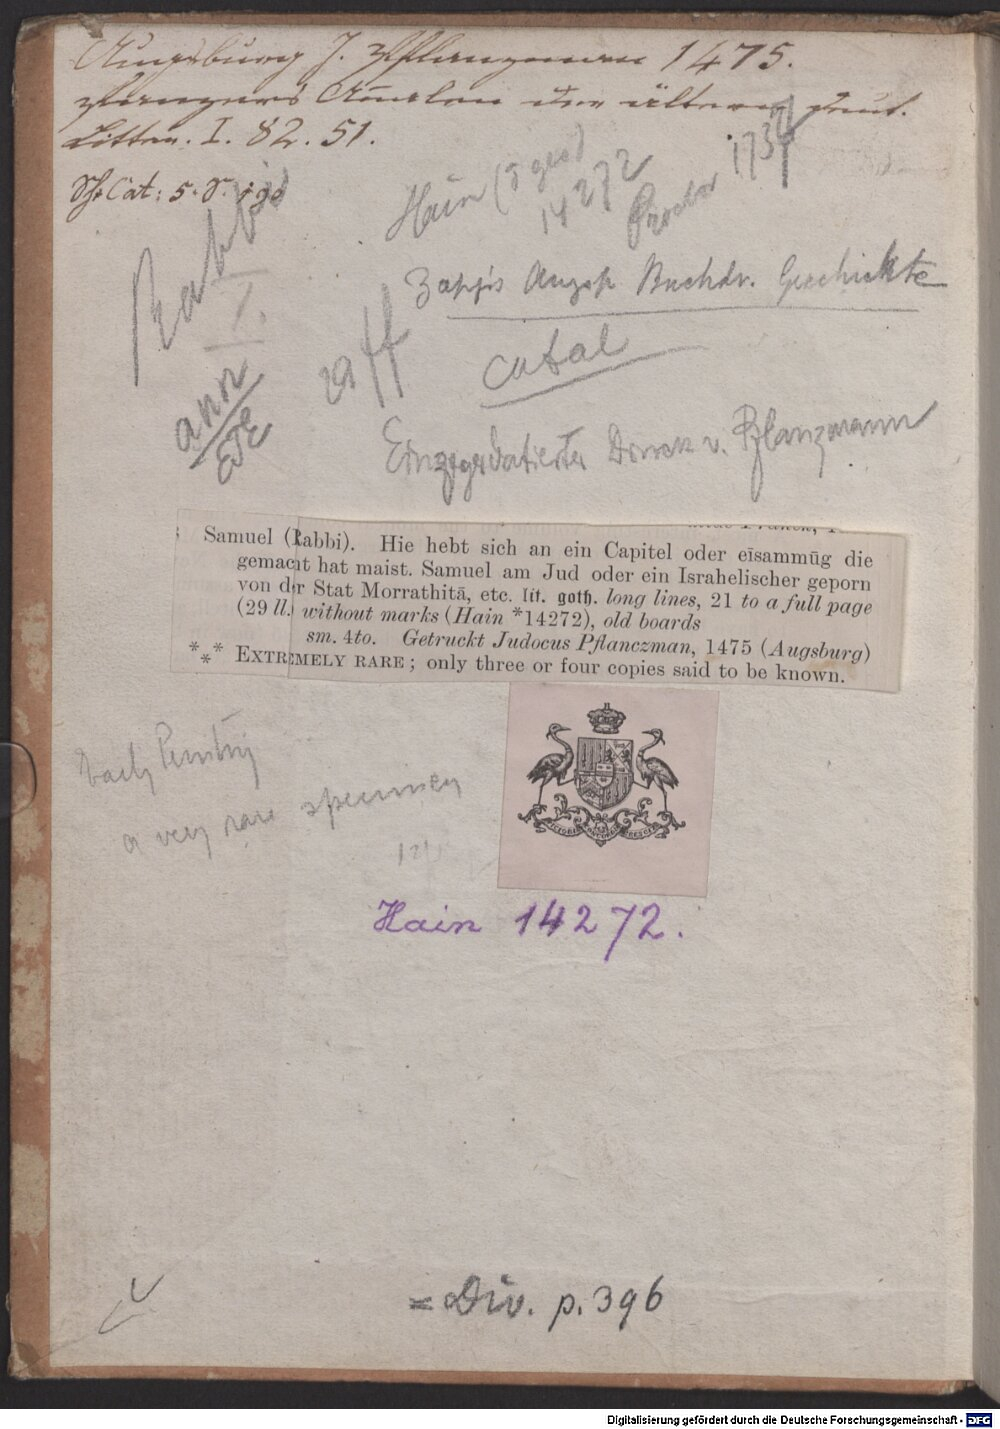 Augsburg J. Pflanzman 1475.
Panzers Annalen der ältern deut.
Litter. I. 82. 51.
Cat: 5. S. 190
Hain
14272
Proctor
Rabbi
I.
Zapf's Augsb Buchdr. Geschichte
29 ff
catal
ann
Einzig datierter Druck v. Pflanzmann
Samuel (Rabbi). Hie hebt sich an ein Capitel oder eīsammūg die
gemacht hat maist. Samuel am Jud oder ein Israhelischer geporn
von der Stat Morrathitā, etc. lit. goth. long lines, 21 to a full page
(29 ll.) without marks (Hain *14272), old boards
sm. 4to. Getruckt Judocus Pflanczman, 1475 (Augsburg)
*** EXTREMELY RARE; only three or four copies said to be known.
a very rare specimen
Hain 14272.
= Div. p. 396
Digitalisierung gefördert durch die Deutsche Forschungsgemeinschaft - DFG